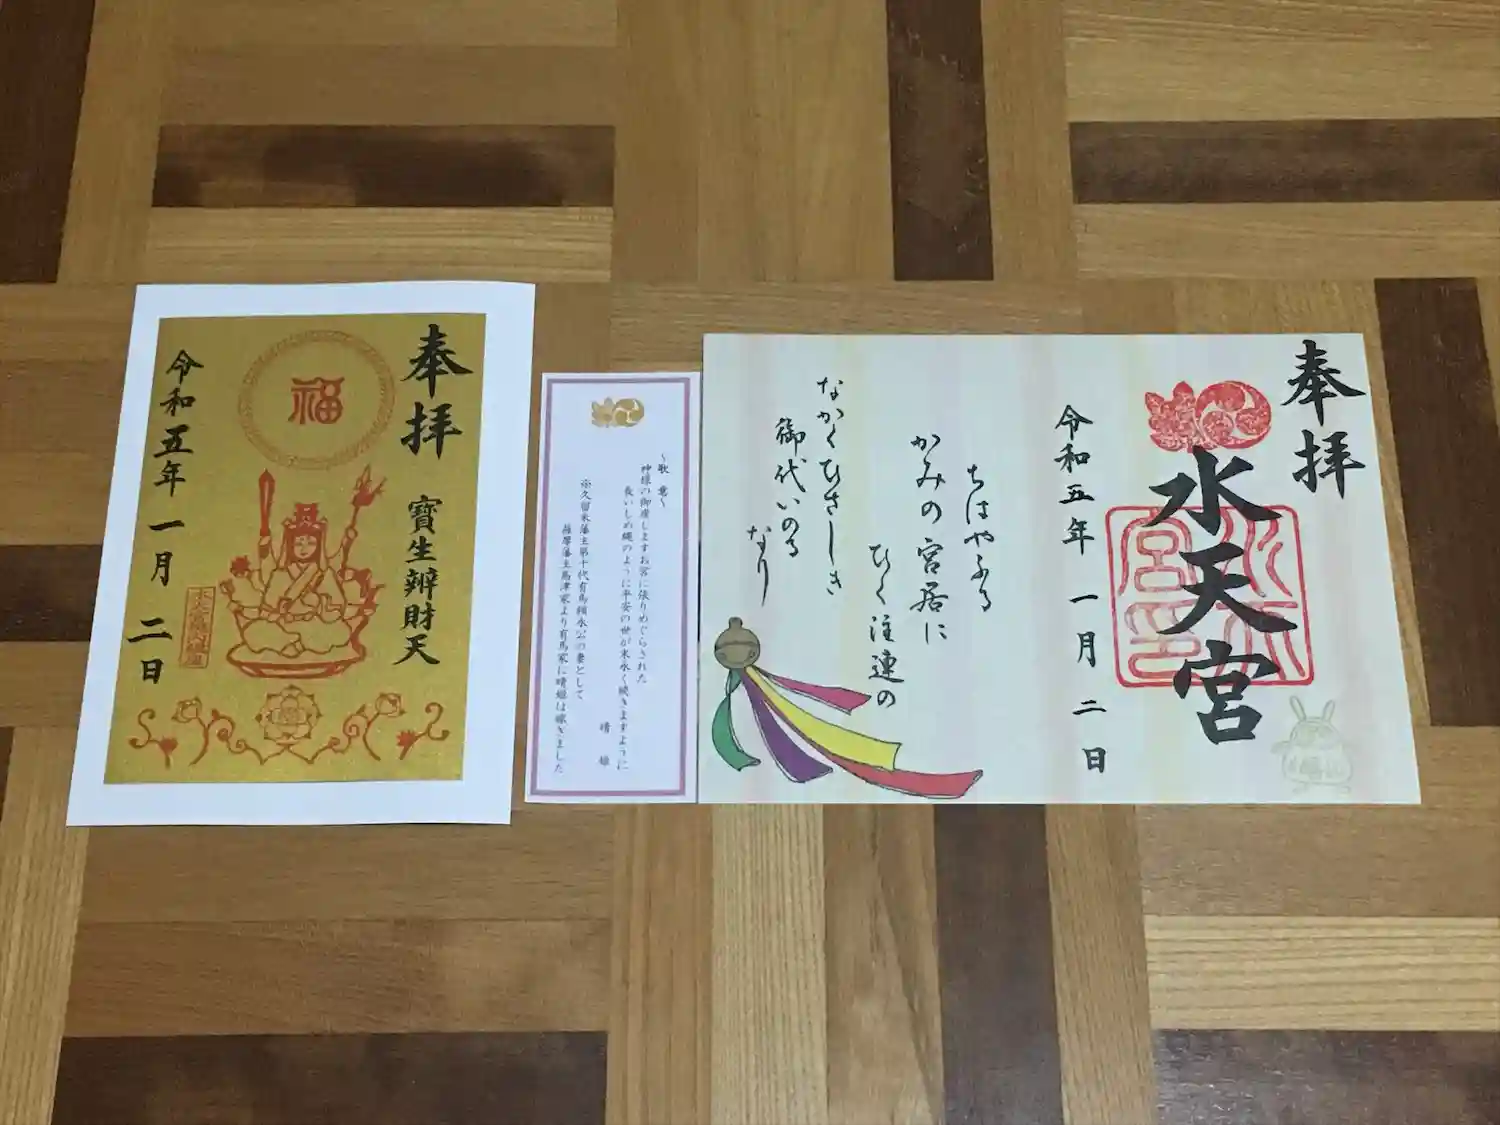 奉拝
寶生辨財天
福
令和五年一月二日
～歌意～
神様の御座しますお宮に張りめぐらされた
長いしめ縄のように平安の世が末永く続きますように
晴姫
※久留米藩主第十代有馬頼永公の妻として
薩摩藩主島津家より有馬家に晴姫は嫁ぎました
奉拝
水天宮
令和五年一月二日
ちはやふる
かみの宮居に
ひく注連の
なかくひさしき
御代いのる
なり